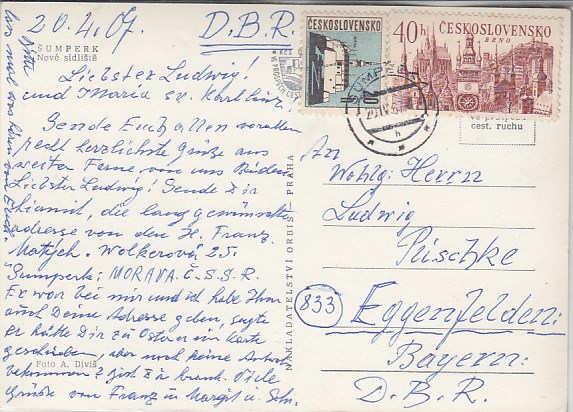 20.4.67. D.B.R.
ŠUMPERK
Nové sídliště
Liebster Ludwig!
und Maria sv. Karlheinz!
Sende Euch allen vorallem
recht herzlichste Grüße aus
weiter Ferne, von uns Beiden
Liebster Ludwig! Sende Dir
hiemit, die lang gewünschte
adresse von den H. Franz
Matých. Wolkerová 25.
Šumperk: MORAVA. Č.S.S.R.
Er war bei mir und ich habe Ihm
auch Deine Adresse geben, sagte
er hätte Dir zu Ostern ein Karte
geschrieben, aber noch keine Antwort
bekommen? Viele
Grüße von Franz u Margit u. Sohn.
Foto A. Diviš
NAKLADATELSTVÍ ORBIS — PRAHA
ČESKOSLOVENSKO
40h ČESKOSLOVENSKO
BRNO
ŠUMPERK
cest. ruchu
An
Wohlg: Herrn
Ludwig
Pischke
833
Eggenfelden:
Bayern:
D.B.R.